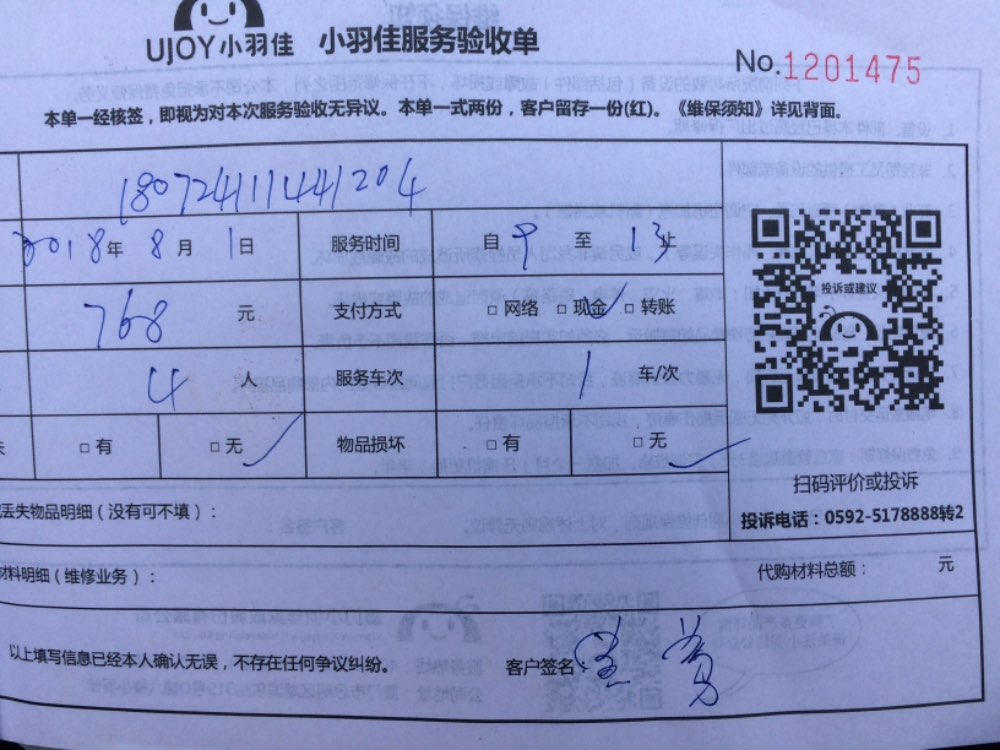 UJOY小羽佳 小羽佳服务验收单
No.1201475
本单一经核签，即视为对本次服务验收无异议。本单一式两份，客户留存一份(红)。《维保须知》详见背面。
18072411441204
2018年 8月 1日 服务时间 自 9 至 13止
投诉或建议
768 元 支付方式 □ 网络 □ 现金 □ 转账
4 人 服务车次 1 车/次
失 □ 有 □ 无 物品损坏 □ 有 □ 无
扫码评价或投诉
投诉电话：0592-5178888转2
丢失物品明细（没有可不填）：
材料明细（维修业务）： 代购材料总额： 元
以上填写信息已经本人确认无误，不存在任何争议纠纷。 客户签名：